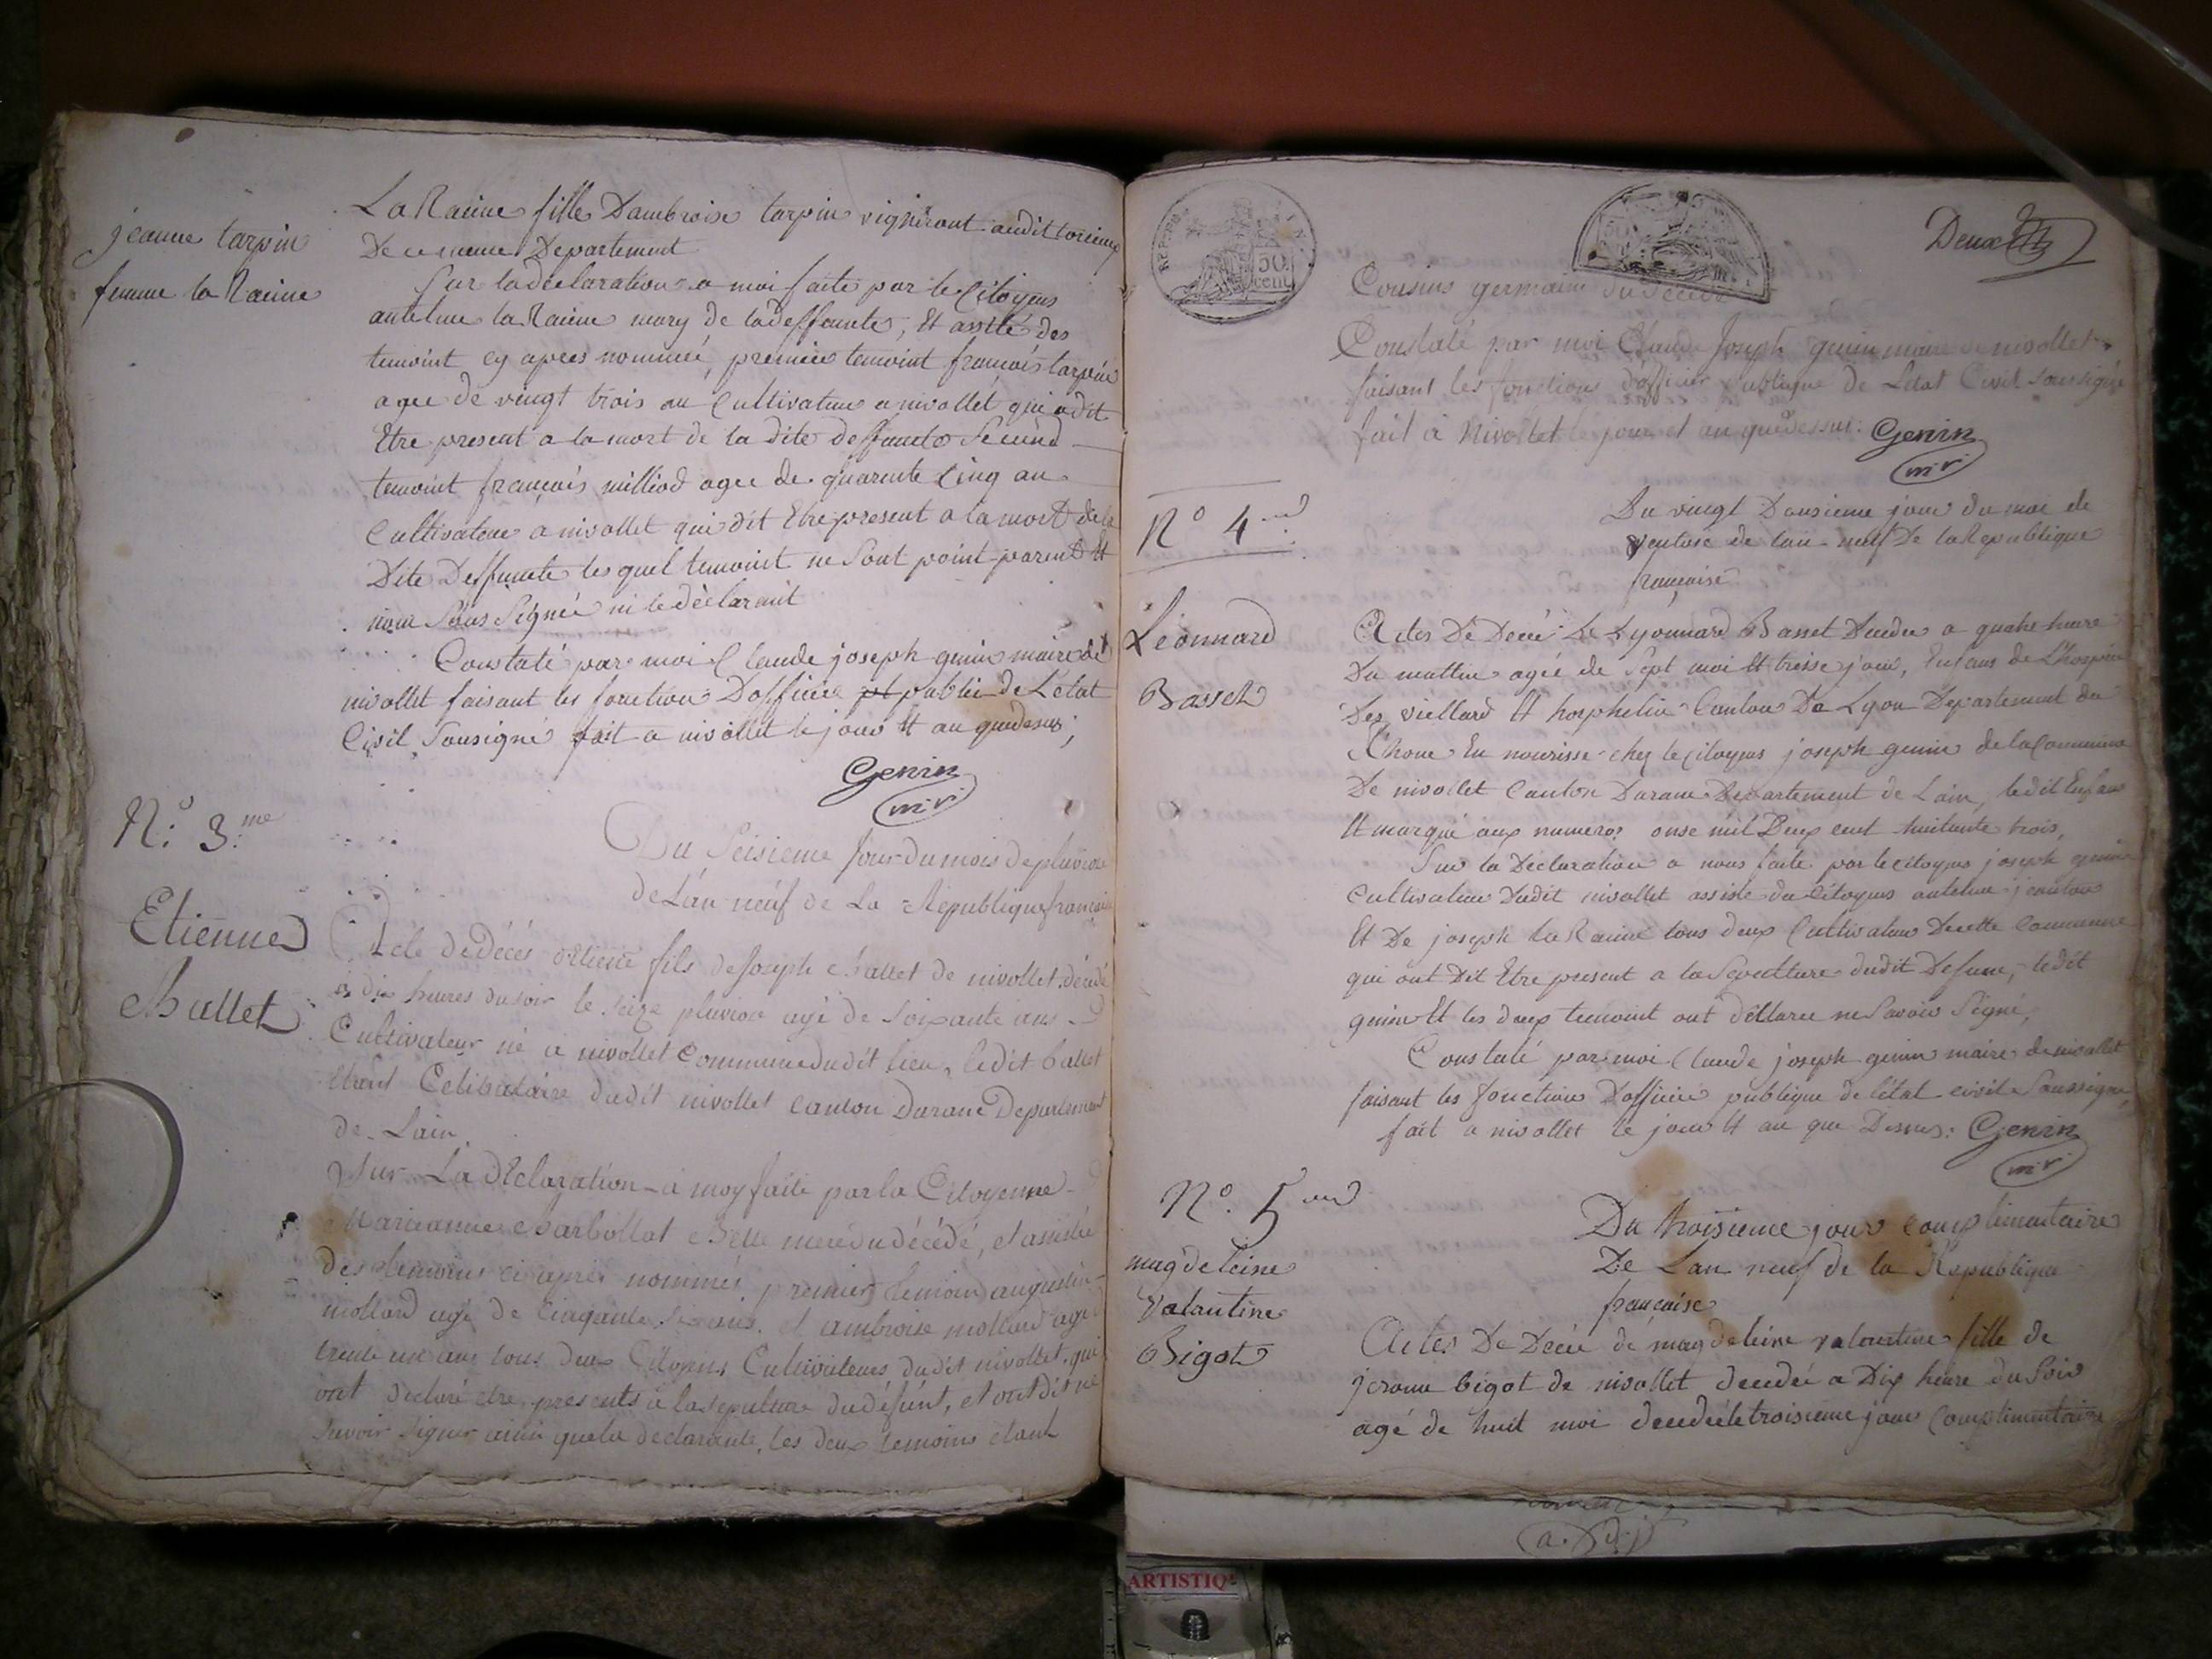 jeanne tarpin
femme la Racine
La Racine fille Dambroise tarpin vigniront audit
De ce meme Departement
Sur la déclaration a moi faite par le Citoyens
antelme la Racine mary de la deffunte, Et assité des
temoint cy apres nommé, premier temoint francois tarpin
agee de vingt trois an Cultivateur a nivollet qui a dit
Etre present a la mort de la dite deffunte Second
temoint francois milliod agee de quarente Cinq an
Cultivateur a nivollet qui dit Etre present a la mort de la
Dite Deffunte les quel temoint ne Sont point parent Et
nour Sous Signée ni le dèclarant
Constaté par moi Claude joseph genin maire de
nivollet faisant les fonction D'officier public De L'état
Civil Sousigné fait a nivollet le jour Et an que desus;
Genin
N.º 3.me
Du Seisieme Jour du mois de pluviose
de L'an neuf de La République francaise
Etienne
Ballet
Acte de décés d'Etiene fils de Joseph Ballet de nivollet décédé
a dix heures du soir le seize pluviose agé de soixante ans
Cultivateur né a nivollet Commune dudit lieu, ledit ballet
étant Célibataire dudit nivollet canton Darane Département
de Lain.
Sur La déClaration a moy faite par la Citoyenne
Marieanne Belle mere du décédé, et assistée
des temoins ci après nommés, premier temoin augustin
mollard agé de Cinquante ans, et ambroise mollard agé
trente un ans tous deux Citoyens Cultivateurs dudit nivollet, qui
ont declaré etre presents a la sepulture du défunt, et ont dit ne
Savoir Signer ainsi que la declarante, les deux temoins etant
Deux
REP. FRA.
50
cent
Cousins germain du décédé
Constaté par moi Claude Joseph genin maire de nivollet
faisant les fonctions d'officier publique de Létat Civil sousigné
fait à Nivollet le jour et an que dessus: Genin
N.º 4
Du vingt Dousieme jour du moi de
ventose de lan neuf De la Republique
francaise
Léonnard
Basset
Actes De Décé De Lyonnard Basset Decedee a quatre heure
Du mattin agée de Sept moi Et treise jour, Enfans de L'hospice
Des viellard Et horphelin Canton De Lyon Departement du
Rhone En nourisse chez le Citoyens joseph genin de la Commune
De nivollet Canton Darane Departement de Lain, ledit Enfans
Et marqué aux numero onse mil Deux cent huitante trois,
Sur la Déclaration a nous faite par le citoyens joseph genin
Cultivateur Dudit nivollet assisté du Citoyens antelme jeanton
Et De joseph La Racine tous deux Cultivateur De cette Commune
qui ont Dit Etre present a la Sepulture dudit Defunt, ledit
genin Et les deux temoint ont déllaree ne Savoir Signé,
Constaté par moi Claude joseph genin maire de nivollet
faisant les fonction D'officié publique de l'état civil Soussigné
fait a nivollet le jour Et an que Dessus: Genin
N.º 5
magdeleine
valantine
Bigot
Du troisieme jour complimentaire
De Lan neuf de la République
francaise
Actes De Décée de magdeleine valentine fille de
jerome bigot de nivollet decedée a Dix heure du Soir
agé de huit moi decedée le troisieme jour Complimentaire
ARTISTIQ